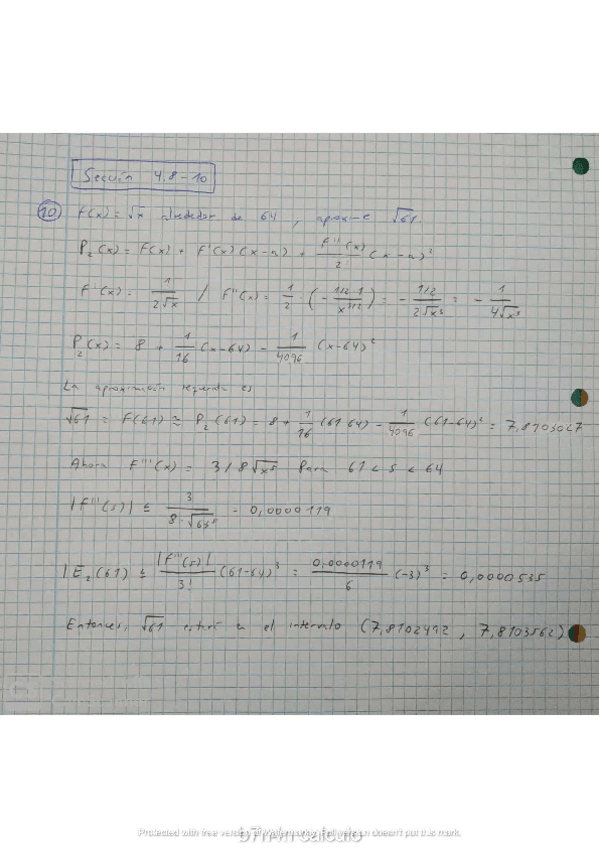 Sección 4,8-10
10) F(x) = √x alrededor de 64, aproxime √61.
P₂(x) = F(x) + F'(x)(x-a) + F''(x)/2! (x-a)²
F'(x) = 1/(2√x) / F''(x) = 1/2 · (- 1/2·1/x^(3/2)) = - (1/2)/(2√x³) = - 1/(4√x³)
P₂(x) = 8 + 1/16 (x-64) - 1/4096 (x-64)²
La aproximación requerida es
√61 = F(61) ≅ P₂(61) = 8 + 1/16 (61-64) - 1/4096 (61-64)² = 7,8103027
Ahora F'''(x) = 3/8√x⁵ Para 61 < s < 64
|F'''(s)| ≤ 3/(8·√61⁵) = 0,0000119
|E₂(61)| ≤ |F'''(s)|/3! (61-64)³ = 0,0000119/6 (-3)³ = 0,0000535
Entonces, √61 estará en el intervalo (7,8102492, 7,8103562)
Protected with free version of Watermarkly. Full version doesn't put this mark.